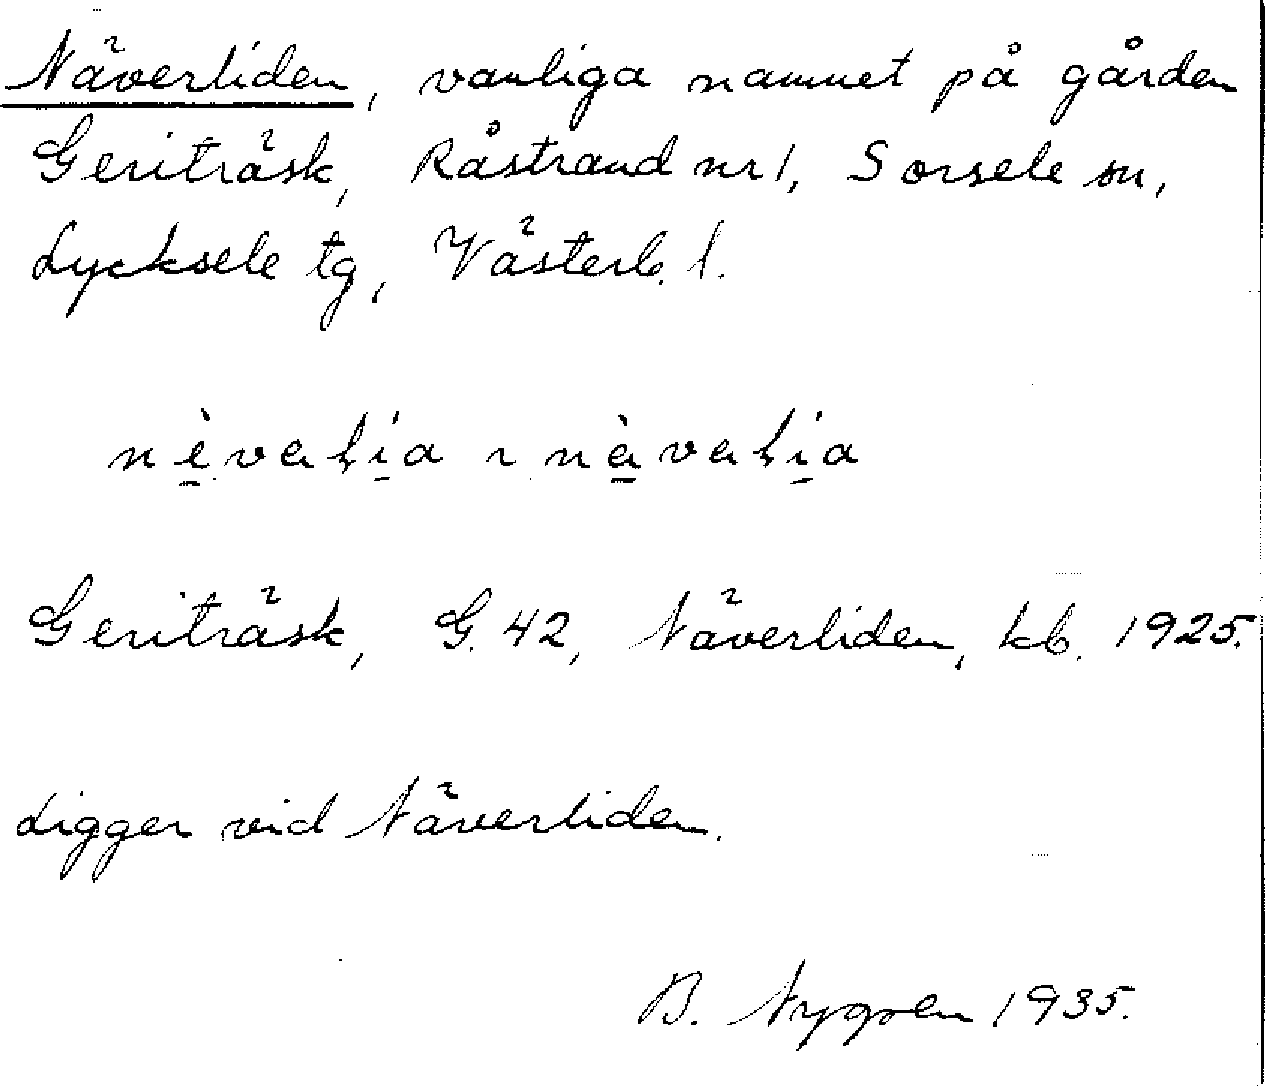 Näverliden, vanliga namnet på gården
Geriträsk, Råstrand nr 1, Sorsele sn,
Lycksele tg, Västerb. l.
nèvalía ~ nàvalía
Geriträsk, G. 42, Näverliden, kb. 1925.
Ligger vid Näverliden.
B. Nygren 1935.